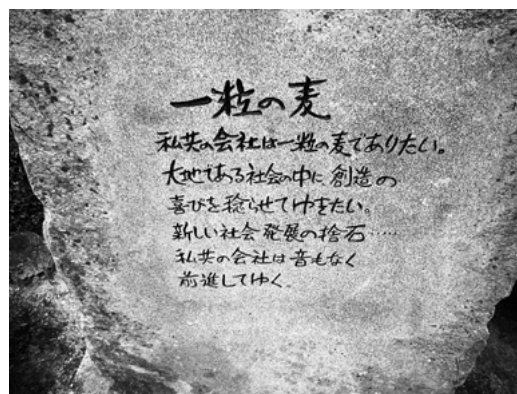 一粒の麦
私共の会社は一粒の麦でありたい。
大地である社会の中に創造の
喜びを稔らせてゆきたい。
新しい社会発展の捨石……
私共の会社は音もなく
前進してゆく